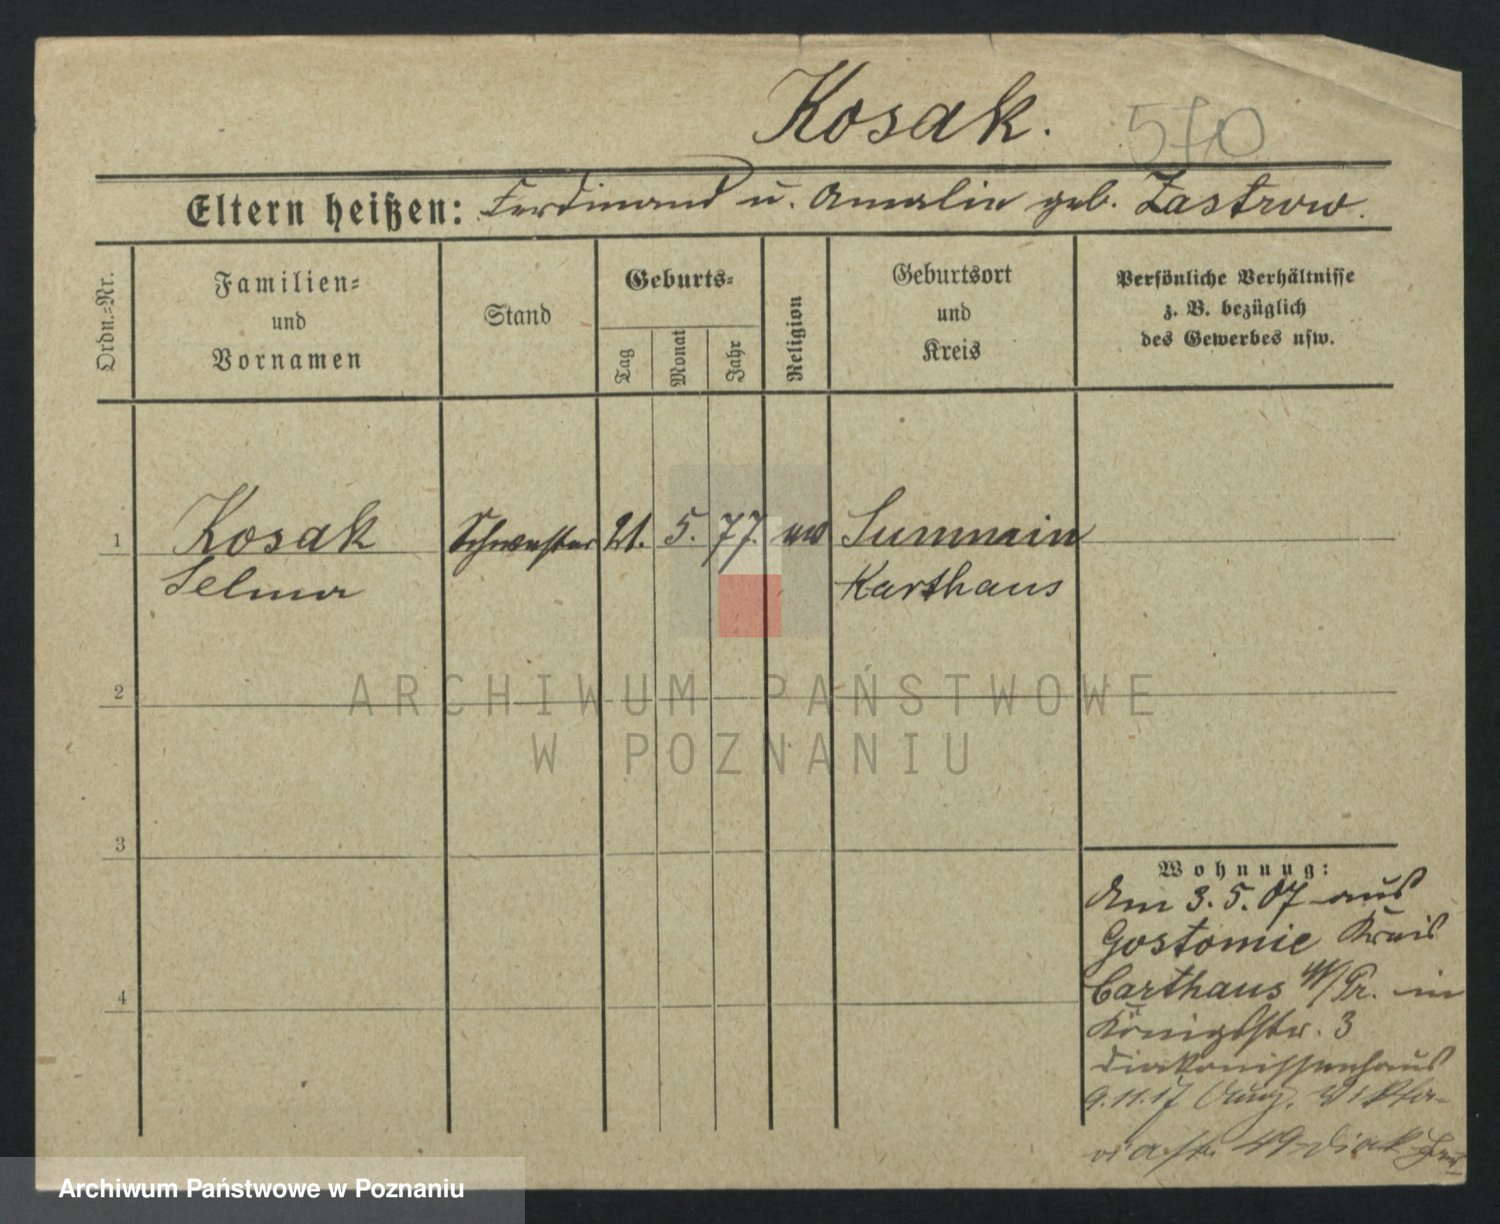 Kosak. 570
Eltern heißen: Ferdinand u. Amalie geb. Zastrow.
Ordn.=Nr.
Familien=
und
Vornamen
Stand
Geburts=
Tag
Monat
Jahr
Religion
Geburtsort
und
Kreis
Persönliche Verhältnisse
z. B. bezüglich
des Gewerbes usw.
1 Kosak Schwester 21. 5. 77. ev Summin
Selma Karthaus
2
3
4
Wohnung:
Am 3. 5. 07 aus
Gostomie Kreis
Carthaus W/Pr. in
Königstr. 3
Diakonissenhaus
9.11.17 Aug. Vikto-
riastr. 49 Diak
ARCHIWUM PAŃSTWOWE
W POZNANIU
Archiwum Państwowe w Poznaniu